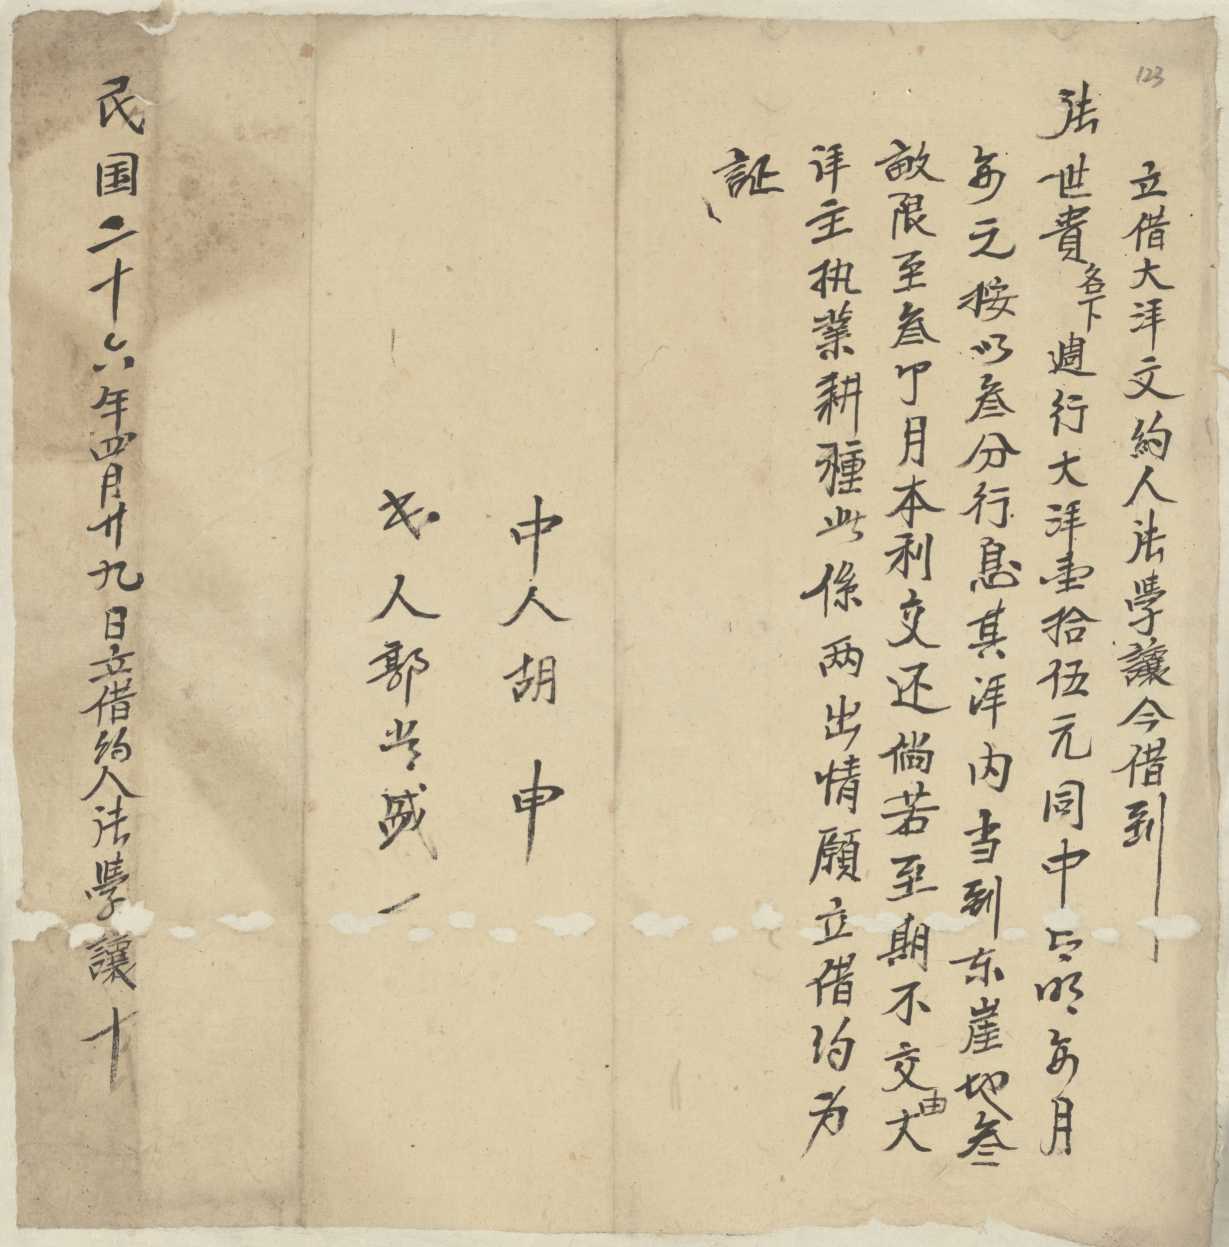 123
立借大洋文約人法學讓今借到
法世貴各下週行大洋壹拾伍元同中言明每月
每元按以叁分行息其洋内当到东崖地叁
畝限至叁个月本利交还倘若至期不交由大
洋主执業耕種此係两出情願立借约为
証
中人胡申
代人郭尚盛
民国二十六年四月廿九日立借约人法學讓十